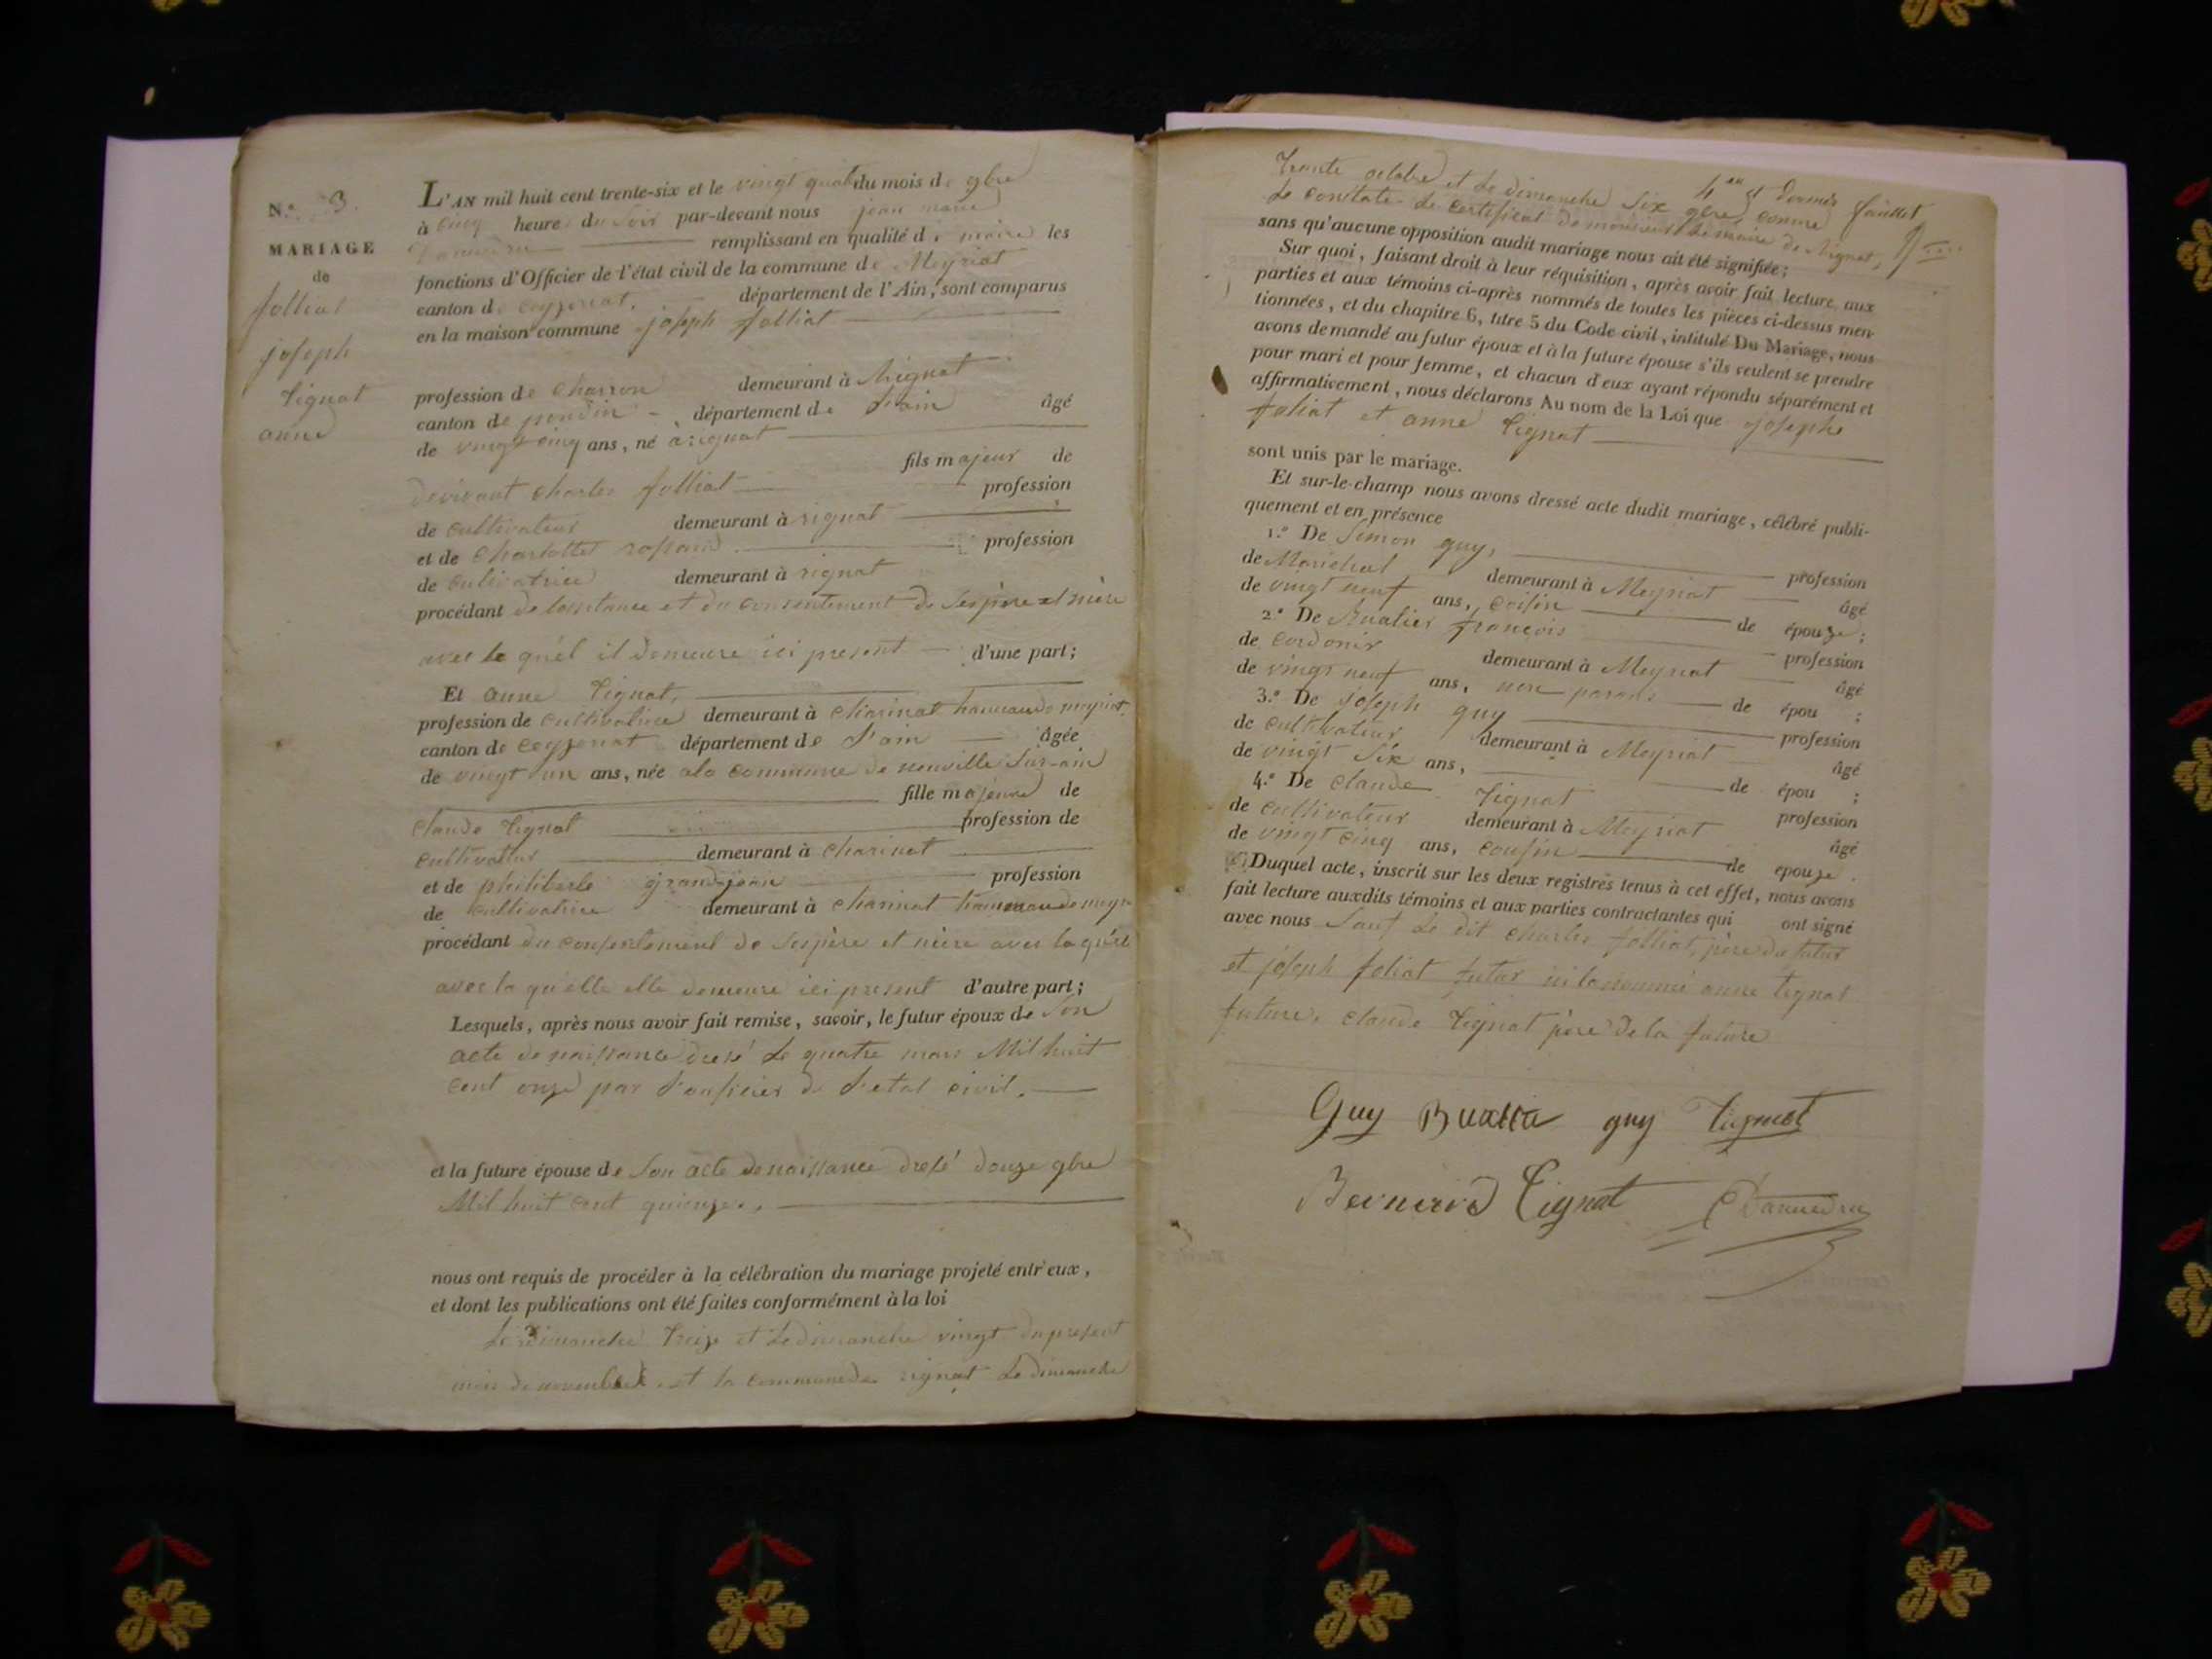 N.° 3.
MARIAGE
de
folliat
joseph
Tignat
anne
L'AN mil huit cent trente-six et le vingt quat du mois de 9bre
à cinq heure du soir par-devant nous jean marie
remplissant en qualité de maire les
fonctions d'Officier de l'état civil de la commune de Meyriat
canton de ceyzeriat. département de l'Ain, sont comparus
en la maison commune joseph folliat
profession de charron demeurant à Rignat
canton de poncin département de l'ain âgé
de vingt cinq ans, né à rignat
fils majeur de
charles folliat profession
de cultivateur demeurant à rignat
et de charlotte profession
de cultivatrice demeurant à rignat
procédant de et du consentement de ses père et mère
avec le quél il demeure ici present d'une part;
Et anne Tignat,
profession de cultivatrice demeurant à charinat hameau de meyriat
canton de ceyzeriat département de l'ain âgée
de vingt un ans, née a la commune de neuville sur-ain
fille majeure de
claude Tignat profession de
cultivateur demeurant à charinat
et de philiberte grandjean profession
de cultivatrice demeurant à charinat hameau de meyr
procédant du consentement de ses père et mère avec la quéle
avec la quélle elle demeure ici present d'autre part;
Lesquels, après nous avoir fait remise, savoir, le futur époux de son
acte de naissance dresé le quatre mars Mil huit
cent onze par l'oufficier de l'etat civil.
et la future épouse de son acte de naissance dresé douze 9bre
Mil huit cent quienze.
nous ont requis de procéder à la célébration du mariage projeté entr'eux,
et dont les publications ont été faites conformément à la loi
le dimanche treize et le dimanche vingt du present
mois de novembre et la commune de rignat le dimanche
trente octobre et le dimanche six 9bre, comme
le constate le certificat de monsieur le maire de Rignat,
4me et dernier feuillet
sans qu'aucune opposition audit mariage nous ait été signifiée;
Sur quoi, faisant droit à leur réquisition, après avoir fait lecture aux
parties et aux témoins ci-après nommés de toutes les pièces ci-dessus men-
tionnées, et du chapitre 6, titre 5 du Code civil, intitulé Du Mariage, nous
avons demandé au futur époux et à la future épouse s'ils veulent se prendre
pour mari et pour femme, et chacun d'eux ayant répondu séparément et
affirmativement, nous déclarons Au nom de la Loi que josephe
foliat et anne Tignat
sont unis par le mariage.
Et sur-le-champ nous avons dressé acte dudit mariage, célébré publi-
quement et en présence
1.° De Simon guy, profession
de Marichal demeurant à Meyriat âgé
de vingt neuf ans, de épouze;
2.° De françois profession
de cordonir demeurant à Meyriat âgé
de vingt neuf ans, non parant de épou ;
3.° De joseph guy profession
de cultivateur demeurant à Meyriat âgé
de vingt six ans, de épou ;
4.° De claude Tignat profession
de cultivateur demeurant à Meyriat âgé
de vingt cinq ans, cousin de epouze.
Duquel acte, inscrit sur les deux registres tenus à cet effet, nous avons
fait lecture auxdits témoins et aux parties contractantes qui ont signé
avec nous sauf le dit charles folliat, père du futur
et joseph foliat futur anne tignat
future, claude Tignat père de la future
Guy guy Tignat
Bernard Tignat